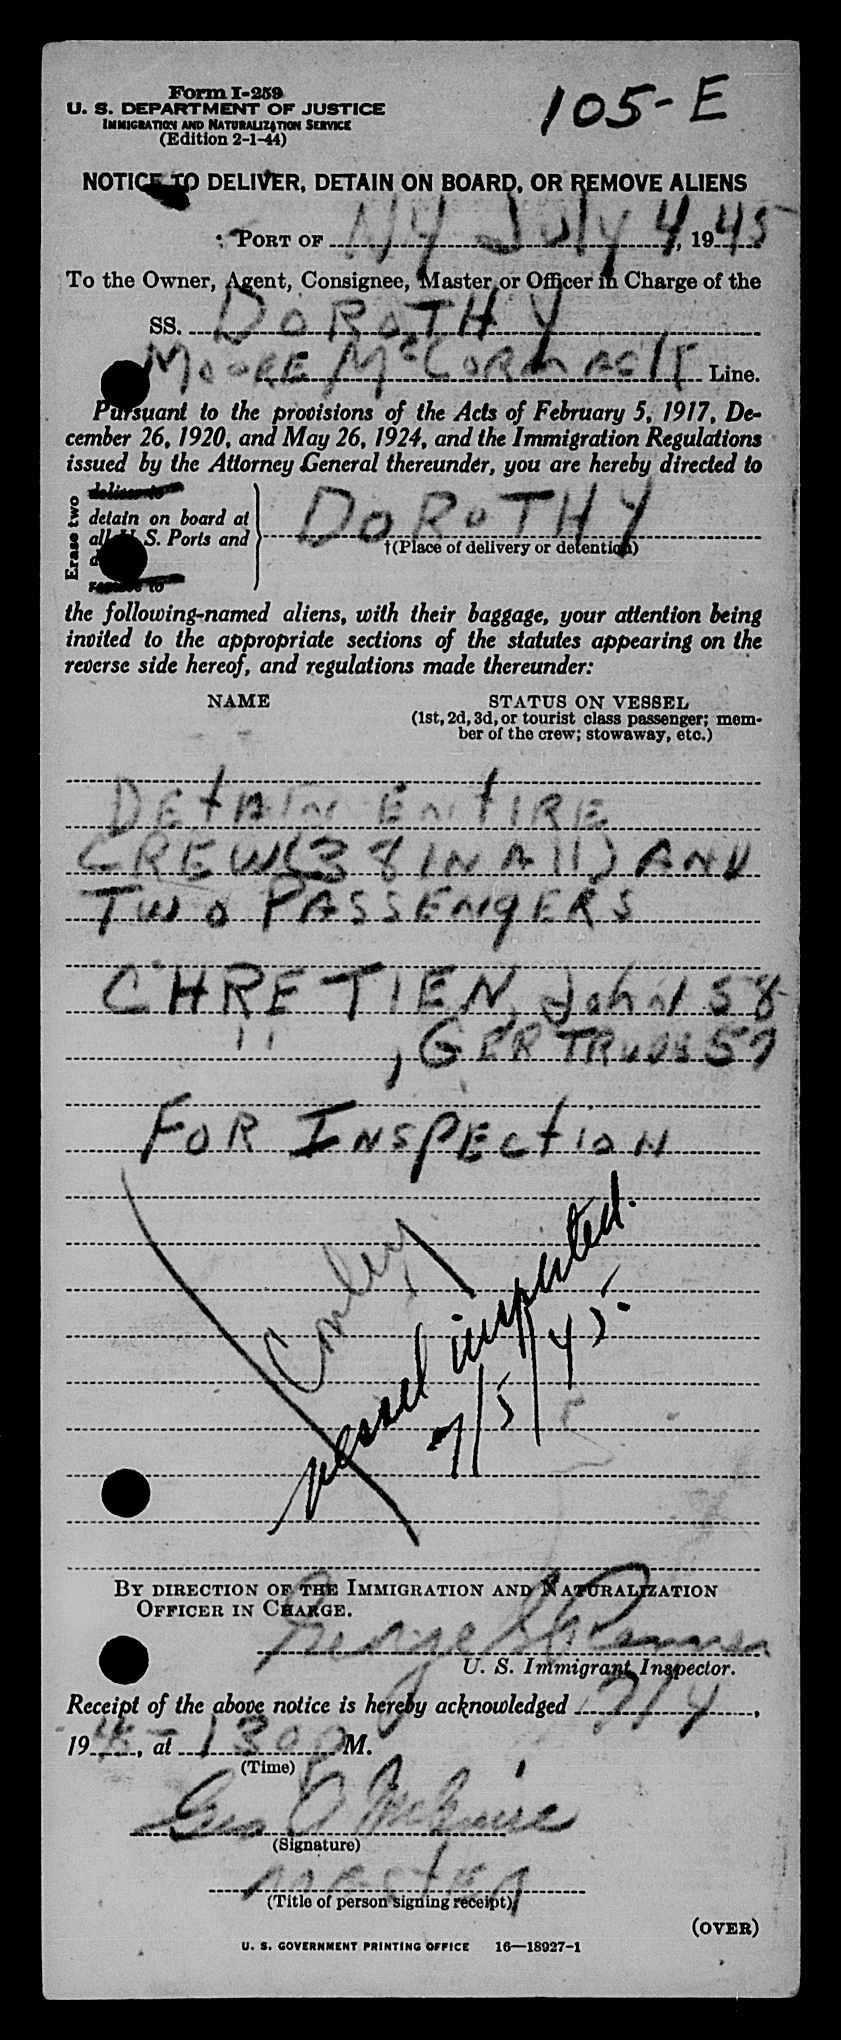 Form I-259
U. S. DEPARTMENT OF JUSTICE
IMMIGRATION AND NATURALIZATION SERVICE
(Edition 2-1-44)
105-E
NOTICE TO DELIVER, DETAIN ON BOARD, OR REMOVE ALIENS
PORT OF NY July 4, 1945
To the Owner, Agent, Consignee, Master, or Officer in Charge of the
SS. DOROTHY
MOORE McCORMACK Line.
Pursuant to the provisions of the Acts of February 5, 1917, De-
cember 26, 1920, and May 26, 1924, and the Immigration Regulations
issued by the Attorney General thereunder, you are hereby directed to
Erase two
deliver to
detain on board at
all U. S. Ports and
remove to
DOROTHY
†(Place of delivery or detention)
the following-named aliens, with their baggage, your attention being
invited to the appropriate sections of the statutes appearing on the
reverse side hereof, and regulations made thereunder:
NAME STATUS ON VESSEL
(1st, 2d, 3d, or tourist class passenger; mem-
ber of the crew; stowaway, etc.)
DETAIN ENTIRE
CREW (38 IN All) AND
TWO PASSENGERS
CHRETIEN, John 58
" , GERTRUDE 57
FOR INSPECTION
Conley
vessel inspected.
7/5/45.
BY DIRECTION OF THE IMMIGRATION AND NATURALIZATION
OFFICER IN CHARGE.
George
U. S. Immigrant Inspector.
Receipt of the above notice is hereby acknowledged 7/4,
1945, at 1300 M.
(Time)
Geo McGuire
(Signature)
MASTER
(Title of person signing receipt)
(OVER)
U. S. GOVERNMENT PRINTING OFFICE 16—18927-1